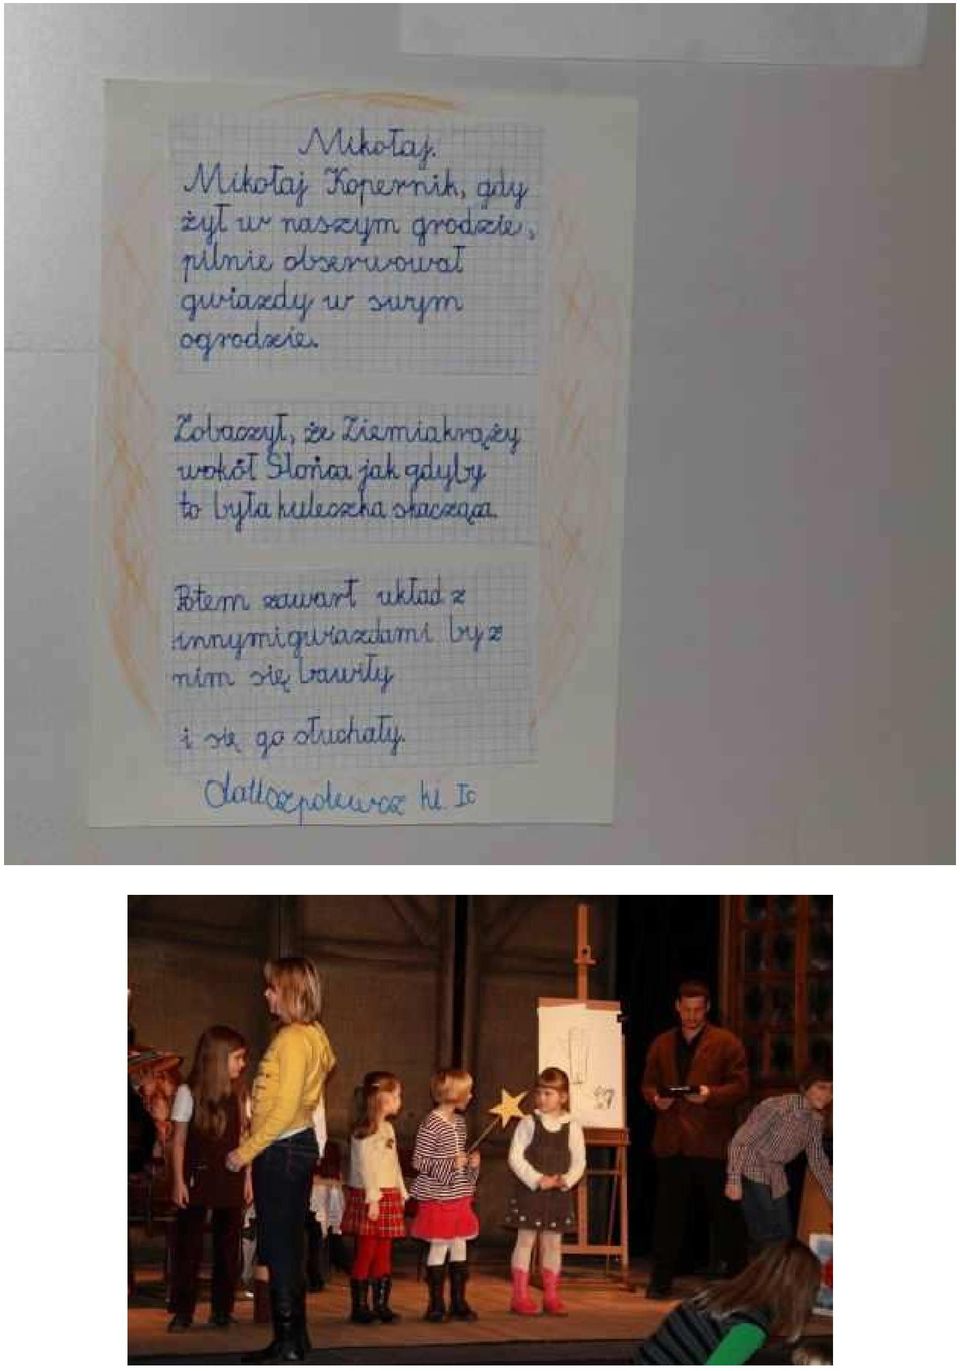 Mikołaj.
Mikołaj Kopernik, gdy
żył w naszym grodzie,
pilnie obserwował
gwiazdy w swym
ogrodzie.
Zobaczył, że Ziemia krąży
wokół Słońca jak gdyby
to była kuleczka skacząca.
Potem zawarł układ z
innymi gwiazdami by z
nim się bawiły
i się go słuchały.
kl. Ic